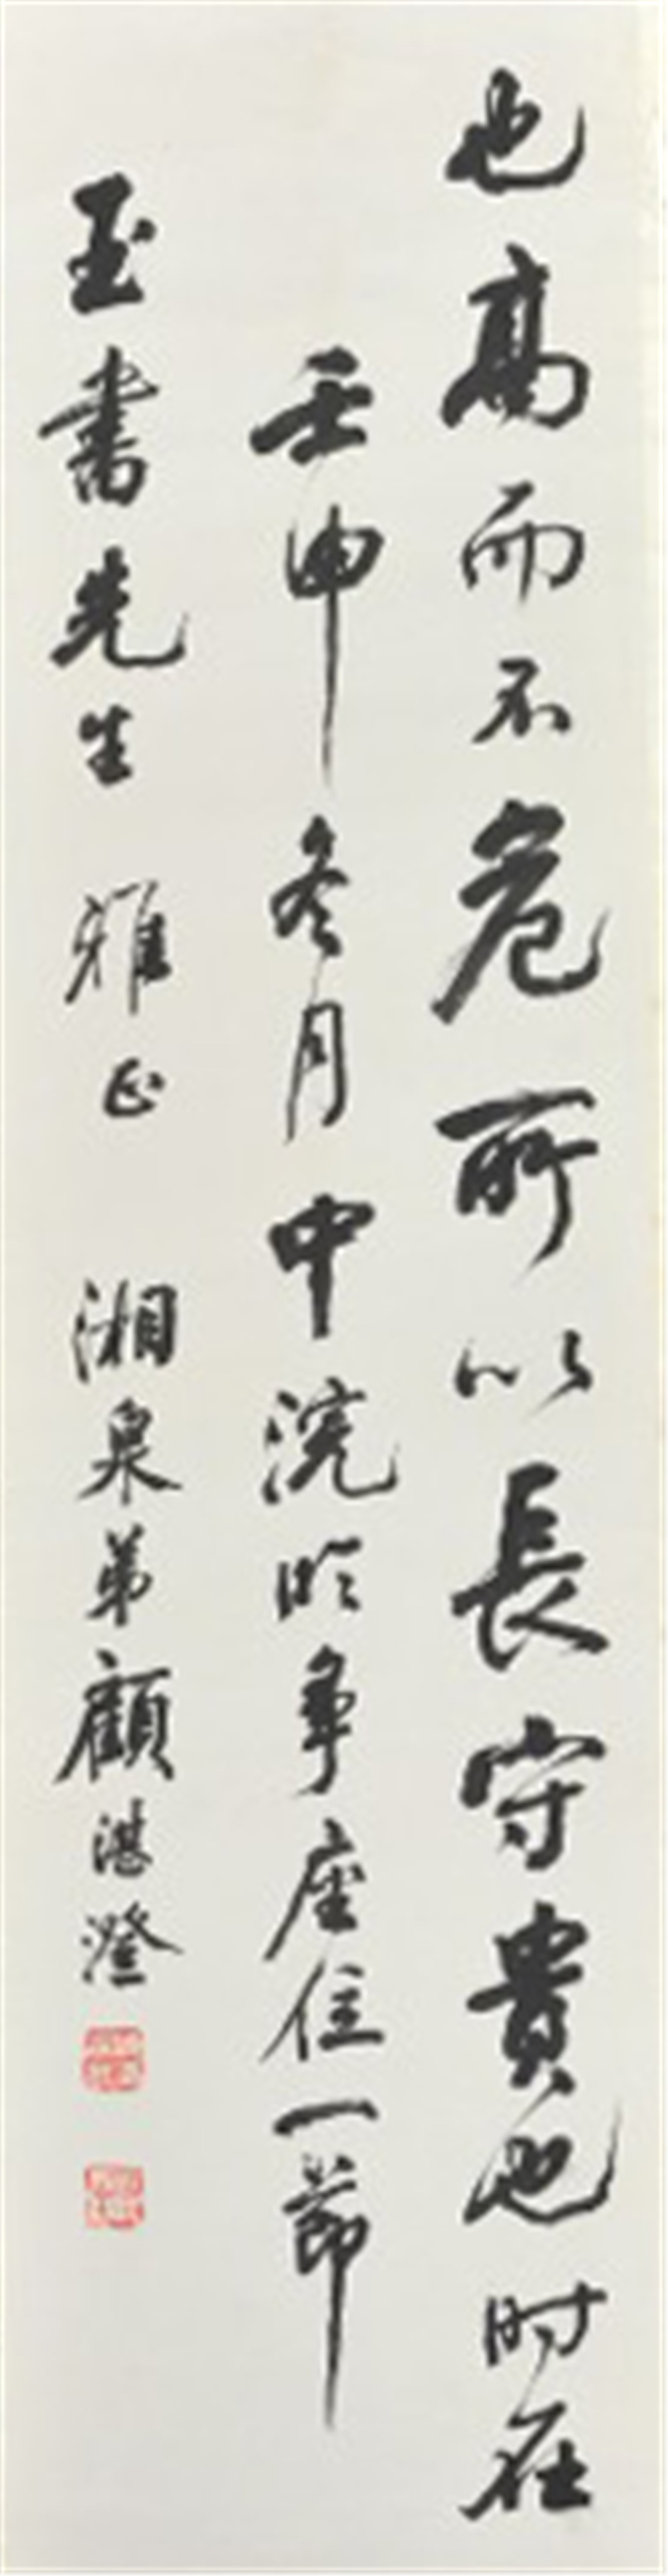 也高而不危所以長守貴也时在
壬申冬月中浣临争座位一節
玉書先生 雅正 湘泉弟顧湛澄